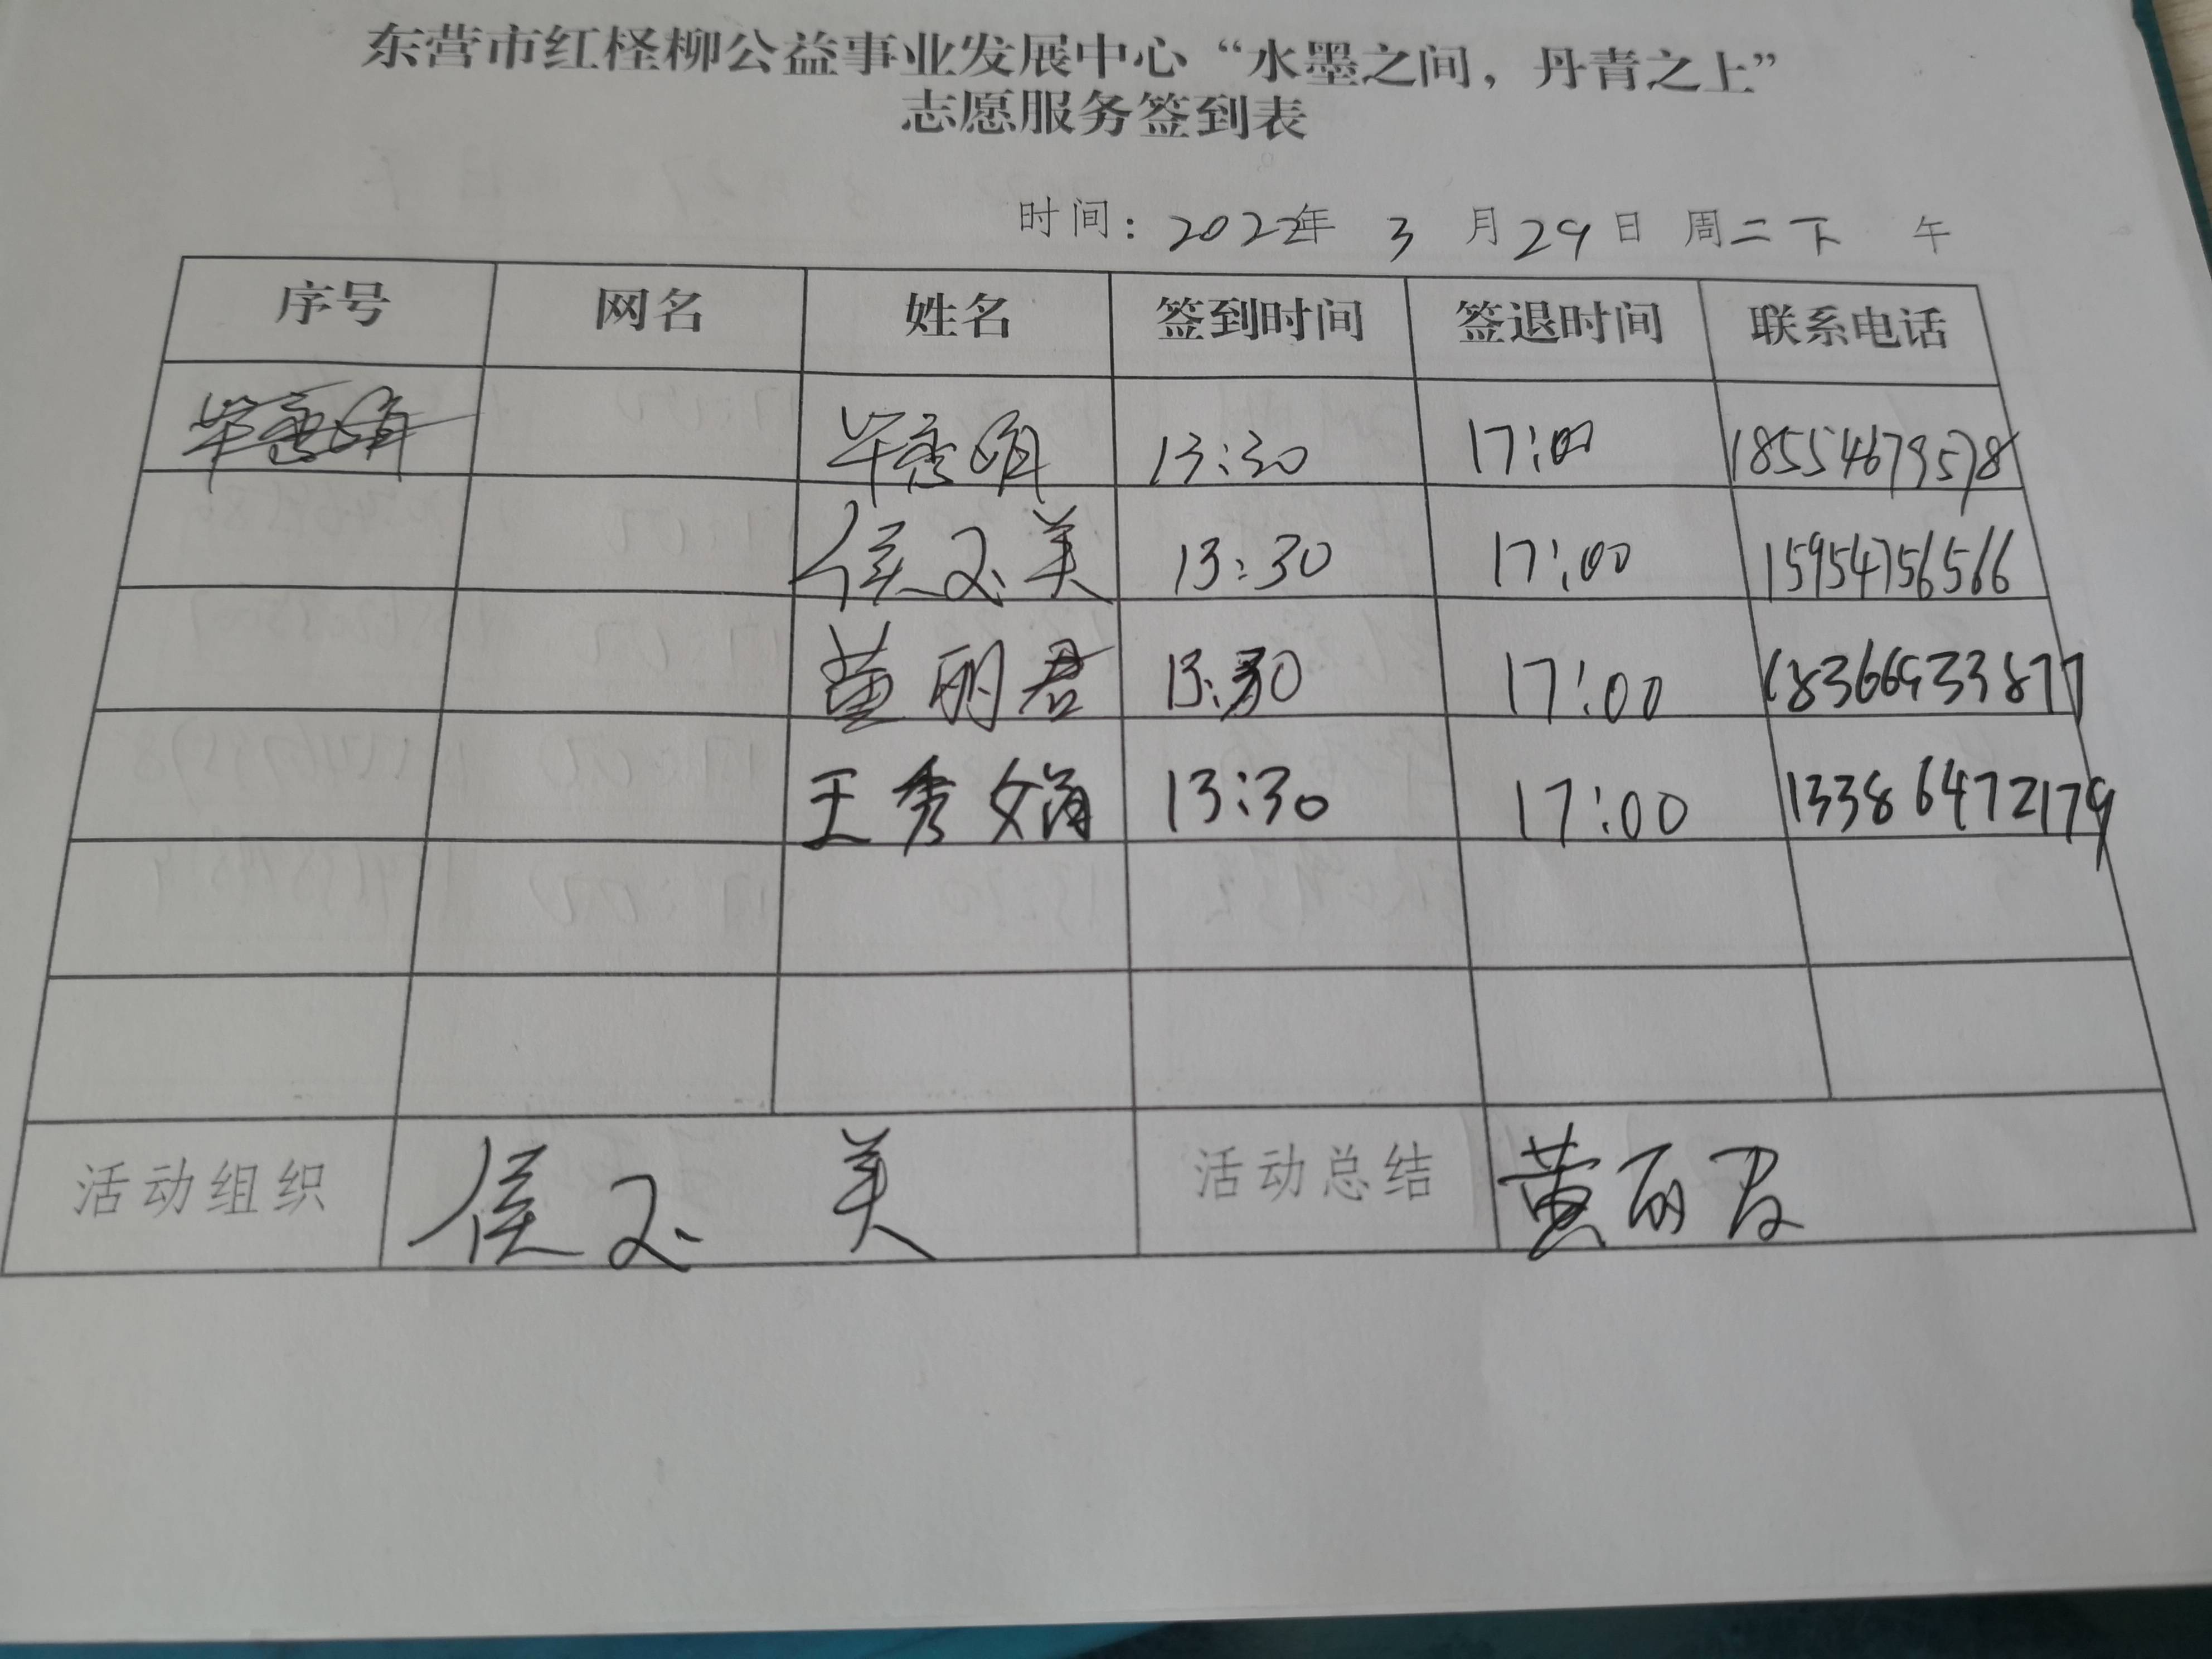 东营市红柽柳公益事业发展中心“水墨之间，丹青之上”
志愿服务签到表
时间：2022年 3 月29日 周二下 午
序号 网名 姓名 签到时间 签退时间 联系电话
13:30 17:00 18554679578
侯玉美 13:30 17:00 15954756566
黄丽君 13:30 17:00 18366933877
王秀娟 13:30 17:00 13386472179
活动组织 侯玉美 活动总结 黄丽君